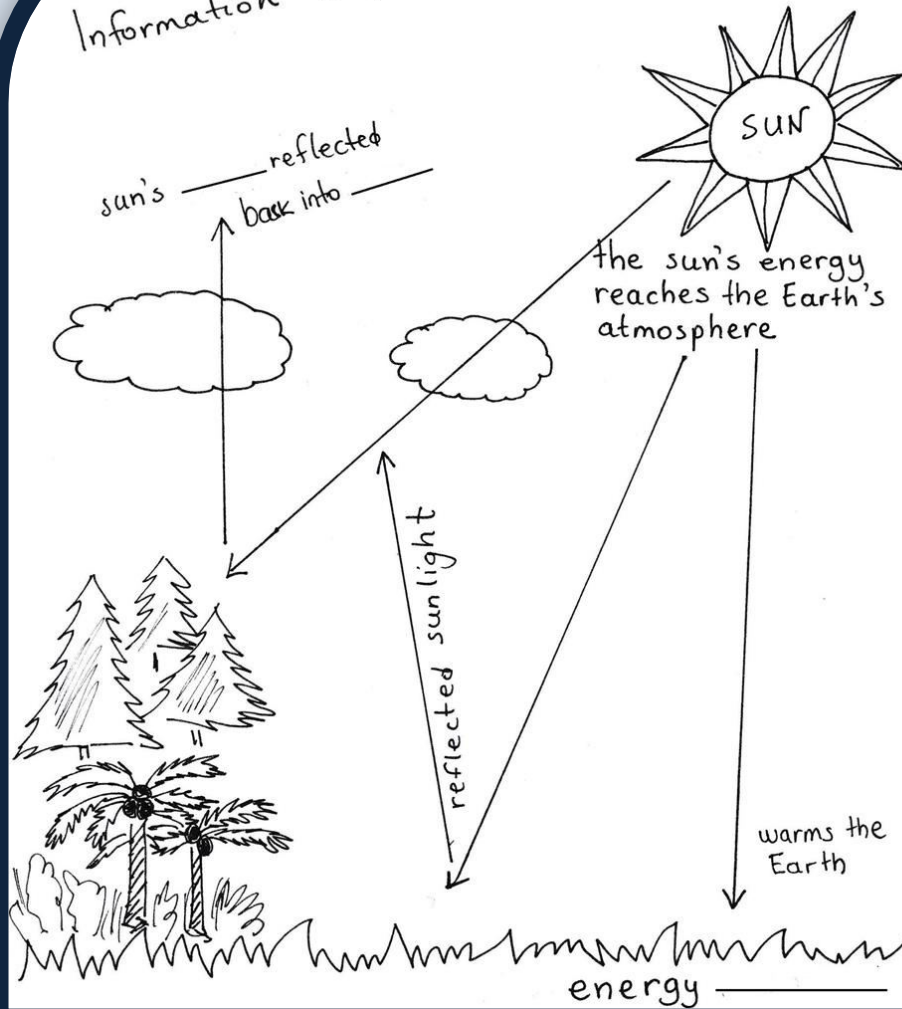 Information
sun's ______ reflected
back into ______
SUN
the sun's energy
reaches the Earth's
atmosphere
reflected sunlight
warms the
Earth
energy ______